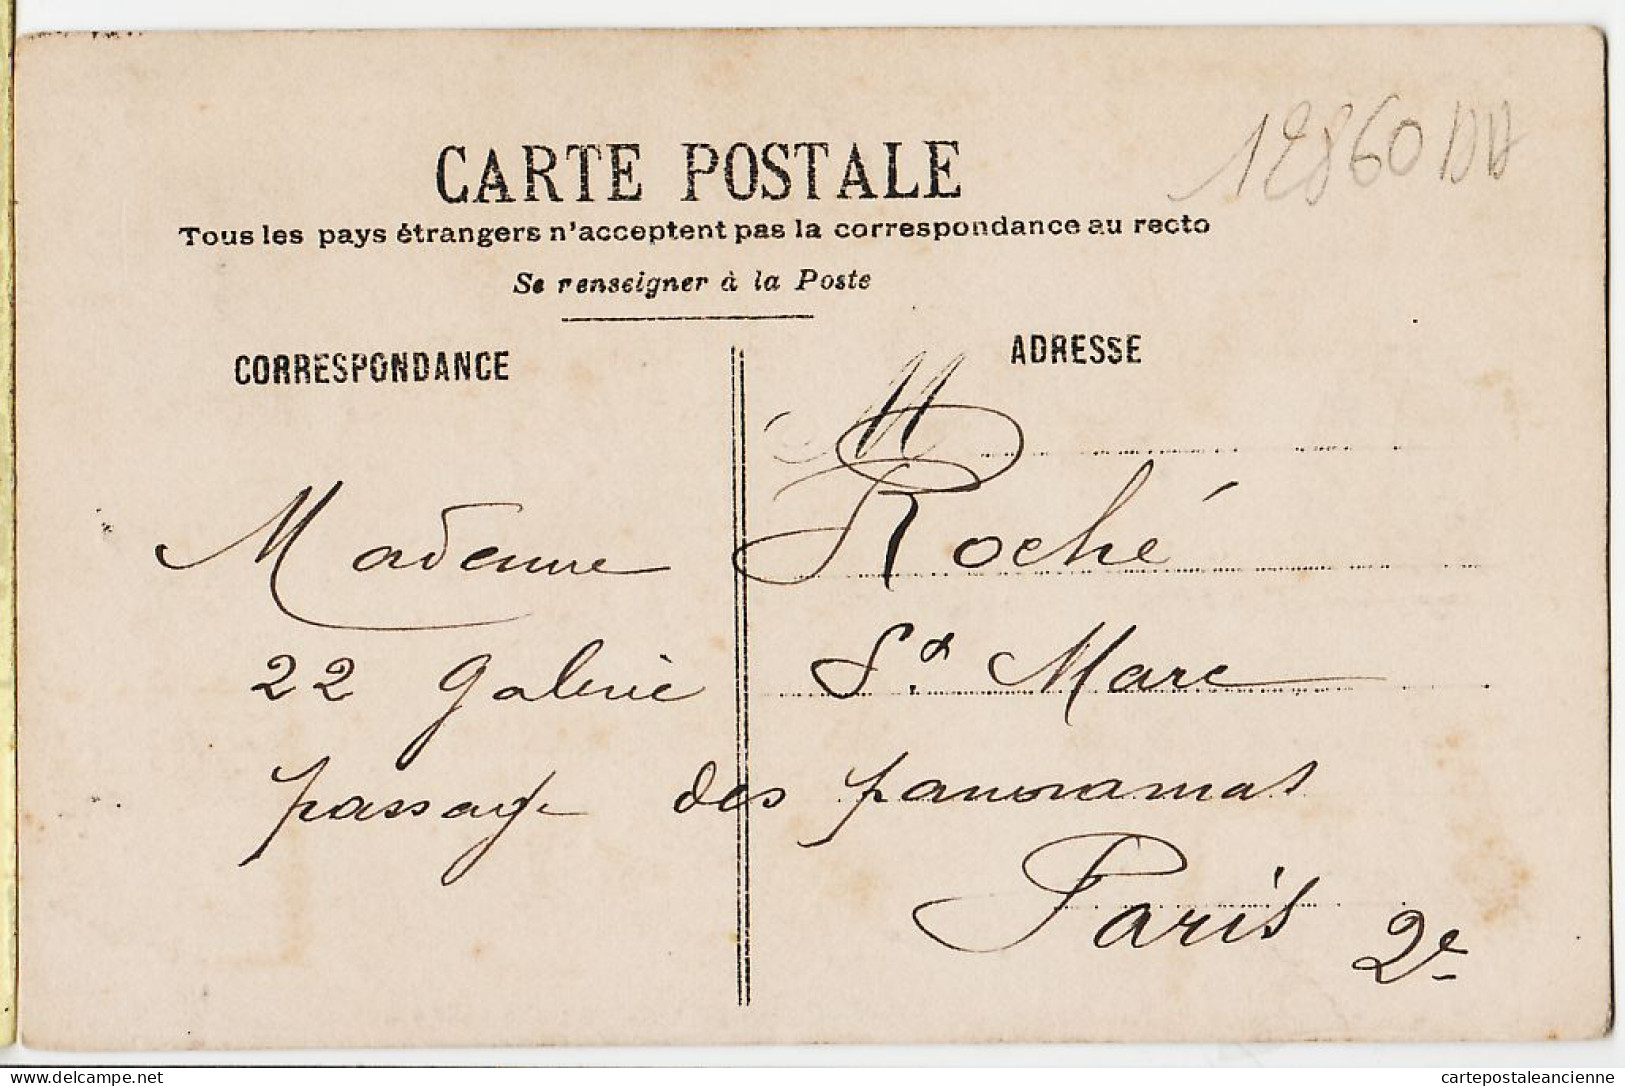 12860DD
CARTE POSTALE
Tous les pays étrangers n'acceptent pas la correspondance au recto
Se renseigner à la Poste
CORRESPONDANCE
ADRESSE
M
Madame Roché
22 Galerie St Marc
passage des panoramas
Paris 2e
delcampe.net
cartepostaleancienne